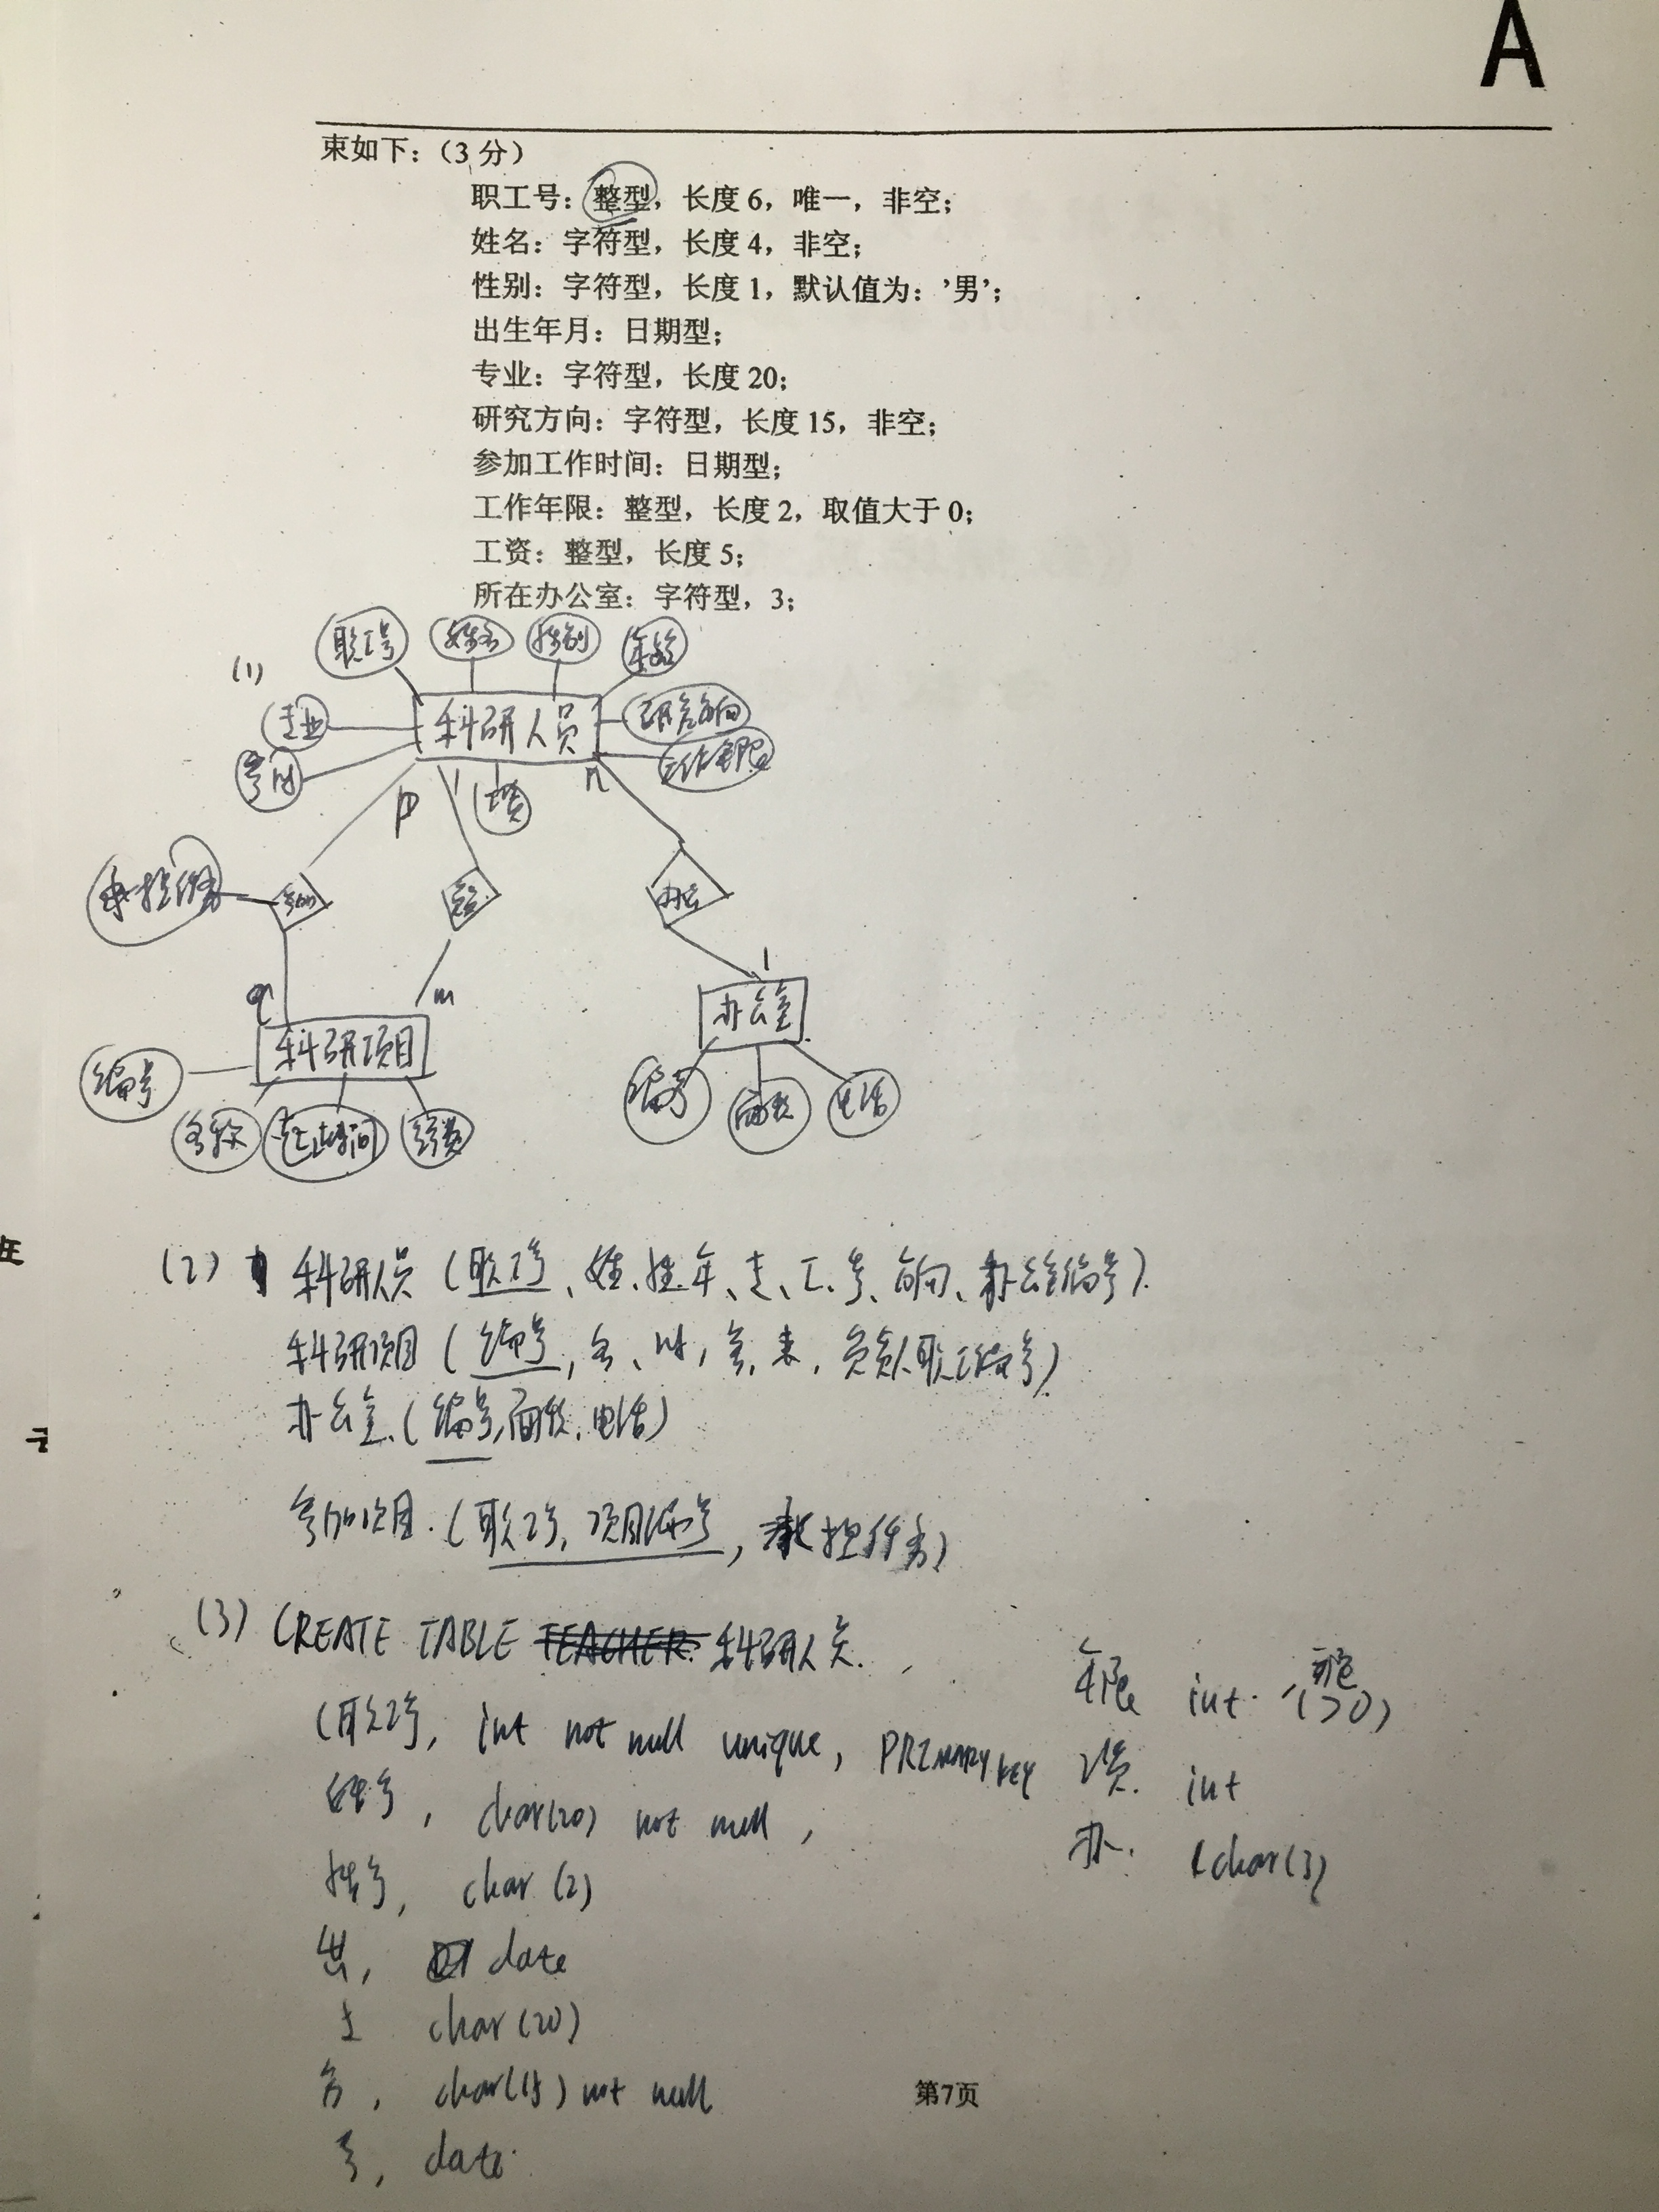 A
束如下：（3 分）
职工号：整型，长度 6，唯一，非空；
姓名：字符型，长度 4，非空；
性别：字符型，长度 1，默认值为：’男’；
出生年月：日期型；
专业：字符型，长度 20；
研究方向：字符型，长度 15，非空；
参加工作时间：日期型；
工作年限：整型，长度 2，取值大于 0；
工资：整型，长度 5；
所在办公室：字符型，3；
(1)
职工号 姓名 性别 年龄
专业 科研人员 研究方向
工作年限
p 1 工资 n
承担任务 参加 负责 办公
q m 1
科研项目 办公室
编号 编号 面积 电话
名称 起止时间 经费
(2) 科研人员 (职工号、姓、性、年、专、工、参、方向、办公室编号).
科研项目 (编号, 名、时, 负责人职工编号)
办公室.(编号,面积,电话)
参加项目.(职工号, 项目编号, 承担任务)
(3) CREATE TABLE 科研人员.
(职工号, int not null unique, PRIMARY KEY
char(20) not null ,
char (2)
出, date
专 char (20)
方, char(15) not null
参, date
年限 int (>0)
工资. int
办. char(3)
第7页